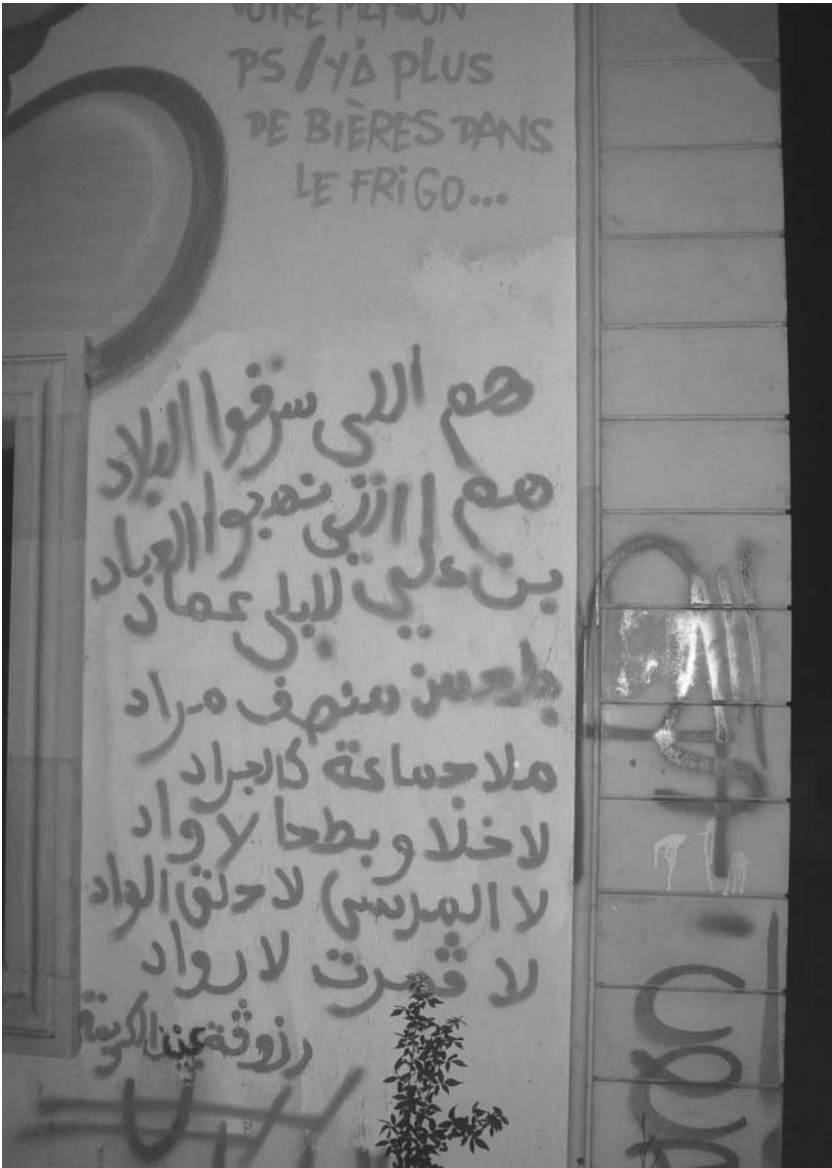 VOTRE MAISON
PS/YA PLUS
DE BIÈRES DANS
LE FRIGO...
هم اللي سرقوا البلاد
هم اللي نهبوا العباد
بن علي لا بلى عماد
بلحسن منصف مراد
ملا جماعة كالجراد
لا خلاو بطحا لا واد
لا المرسى لا حلق الواد
لا ڨمرت لا رواد
رزوڨة